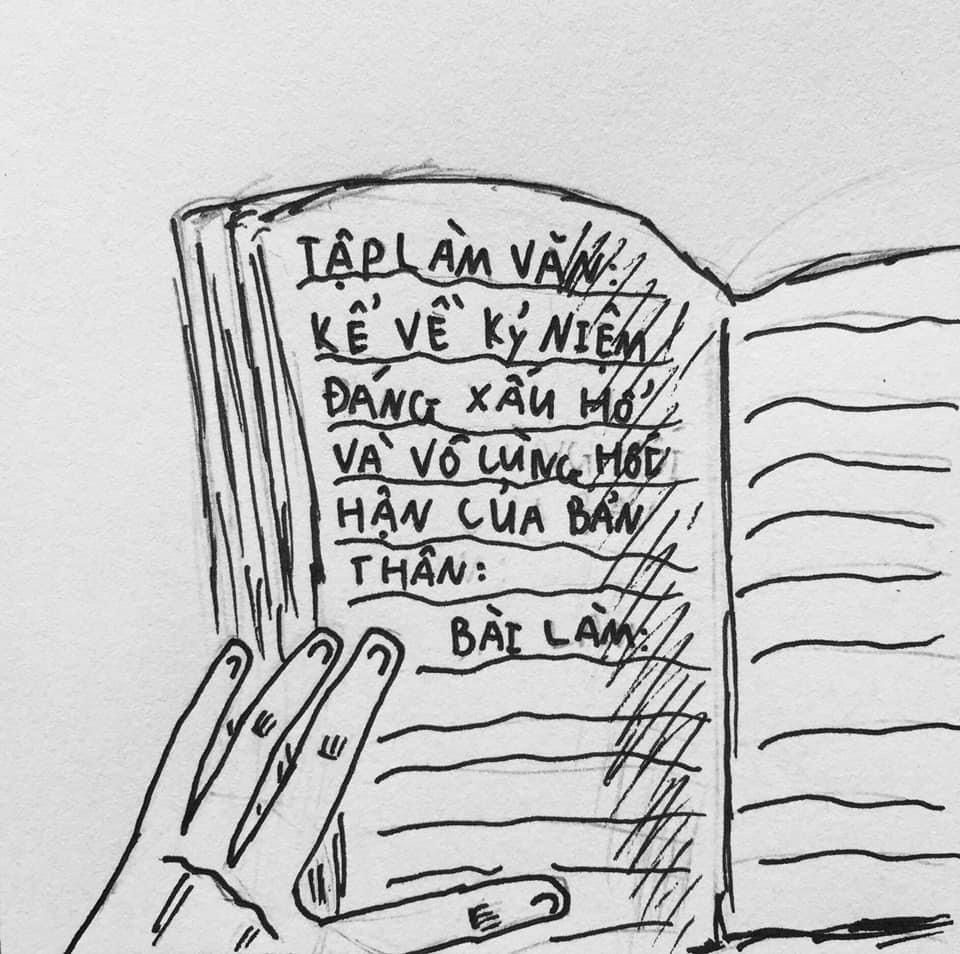 TẬP LÀM VĂN:
KỂ VỀ KỶ NIỆM
ĐÁNG XẤU HỔ
VÀ VÔ CÙNG HỐI
HẬN CỦA BẢN
THÂN:
BÀI LÀM: